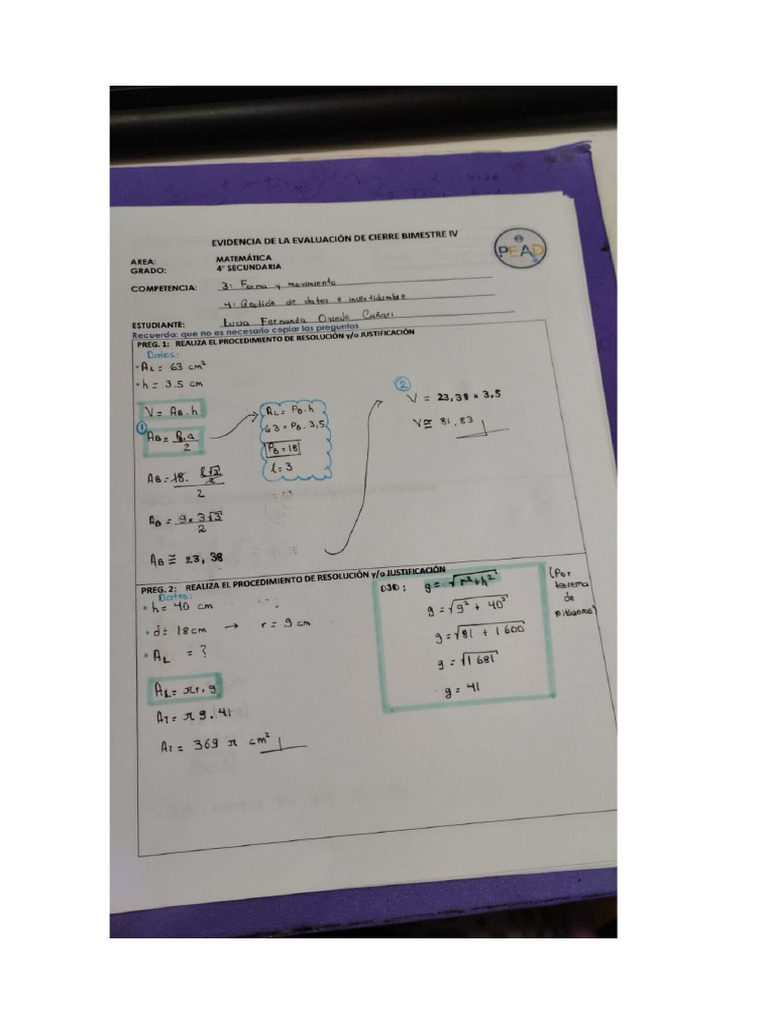 EVIDENCIA DE LA EVALUACIÓN DE CIERRE BIMESTRE IV
PEAD
AREA: MATEMÁTICA
GRADO: 4° SECUNDARIA
COMPETENCIA: 3: Forma y movimiento
4: Gestión de datos e incertidumbre
ESTUDIANTE: Lucia Fernanda Oviedo Cañari
Recuerda: que no es necesario copiar las preguntas
PREG. 1: REALIZA EL PROCEDIMIENTO DE RESOLUCIÓN y/o JUSTIFICACIÓN
Datos:
• AL = 63 cm²
• h = 3.5 cm
V = AB . h
①
AB = P.a / 2
AB = 18. l√3/6 / 2
AB = 9 x 3√3 / 2
AB ≅ 23,38
AL = PB . h
63 = PB . 3,5
PB = 18
l = 3
②
V = 23,38 x 3,5
V ≅ 81,83
PREG. 2: REALIZA EL PROCEDIMIENTO DE RESOLUCIÓN y/o JUSTIFICACIÓN
Datos:
• h = 40 cm
• d = 18 cm → r = 9 cm
• AL = ?
AL = πr.g
AT = π 9.41
AT = 369 π cm²
OJO: g = √r² + h²
g = √9² + 40²
g = √81 + 1 600
g = √1 681
g = 41
(Por
teorema
de
pitágoras)